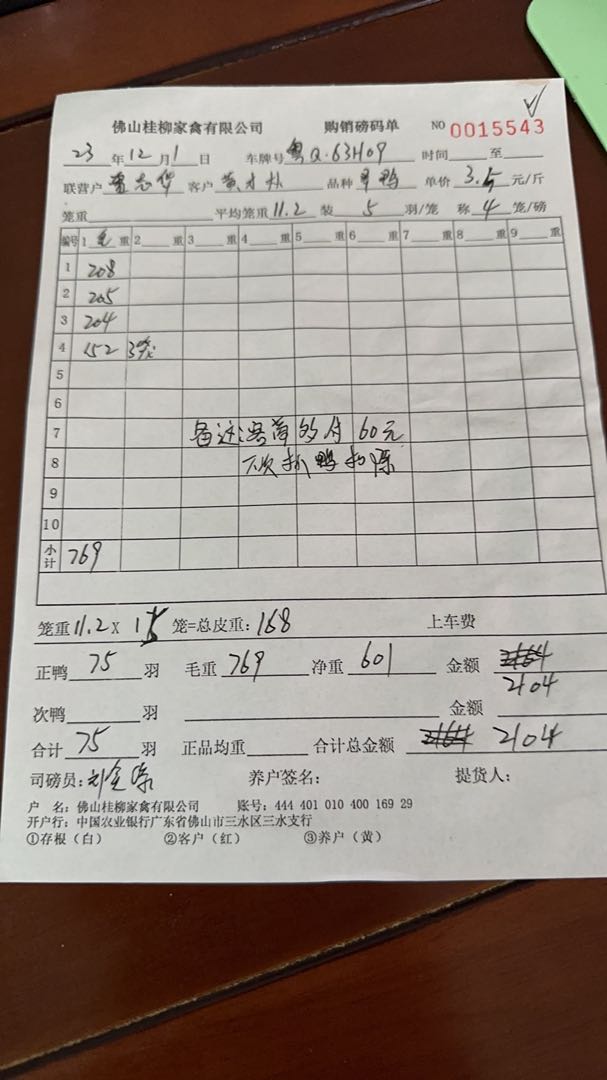 佛山桂柳家禽有限公司 购销磅码单 NO 0015543
23 年 12 月 1 日 车牌号 粤Q·63H09 时间 至
联营户 志华 客户 黄才 品种 鸭 单价 3.5 元/斤
笼重 平均笼重 11.2 装 5 羽/笼 称 4 笼/磅
编号 1 毛 重 2 重 3 重 4 重 5 重 6 重 7 重 8 重 9 重
1 208
2 205
3 204
4 152 3笼
5
6
7 备注: 多付 60元
8 下次抓鸭扣除
9
10
小计 769
笼重 11.2 X 15 笼=总皮重: 168 上车费
正鸭 75 羽 毛重 769 净重 601 金额 2164
2104
次鸭 羽 金额
合计 75 羽 正品均重 合计总金额 2164 2104
司磅员: 刘 养户签名: 提货人:
户 名: 佛山桂柳家禽有限公司 账号: 444 401 010 400 169 29
开户行: 中国农业银行广东省佛山市三水区三水支行
①存根(白) ②客户(红) ③养户(黄)